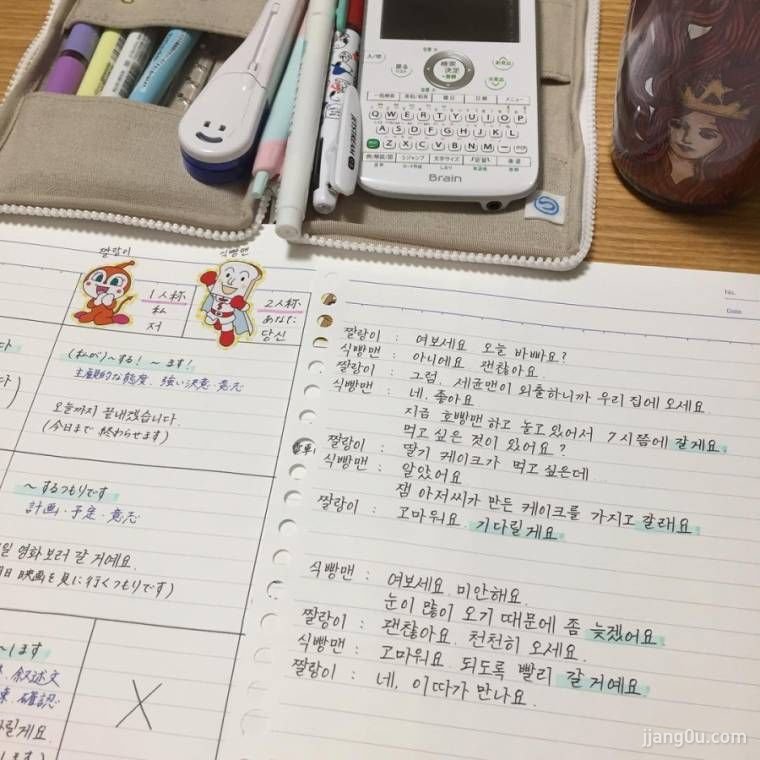 入/切
戻る
リスト
検索
決定
Q W E R T Y U I O P
A S D F G H J K L
Z X C V B N M
文字サイズ
Brain
JETSTREAM
짤랑이
식빵맨
1人称
私
저
2人称
あなた
당신
(私が)~する! ~ます!
主観的な態度、強い決意・意志
오늘까지 끝내겠습니다.
(今日まで 終わらせます)
~するつもりです
計画・予定・意志
일 영화 보러 갈 거예요.
日 映画を見に行くつもりです)
~します
叙述文
確認
No.
Date
짤랑이 : 여보세요 오늘 바빠요?
식빵맨 : 아니에요 괜찮아요.
짤랑이 : 그럼, 세균맨이 외출하니까 우리 집에 오세요.
식빵맨 : 네, 좋아요
지금 호빵맨하고 놀고 있어서 7시쯤에 갈게요.
먹고 싶은 것이 있어요?
짤랑이 : 딸기 케이크가 먹고 싶은데...
식빵맨 : 알았어요
잼 아저씨가 만든 케이크를 가지고 갈래요.
짤랑이 : 고마워요. 기다릴게요.
식빵맨 : 여보세요. 미안해요.
눈이 많이 오기 때문에 좀 늦겠어요.
짤랑이 : 괜찮아요. 천천히 오세요.
식빵맨 : 고마워요. 되도록 빨리 갈 거예요.
짤랑이 : 네, 이따가 만나요.
jjang0u.com